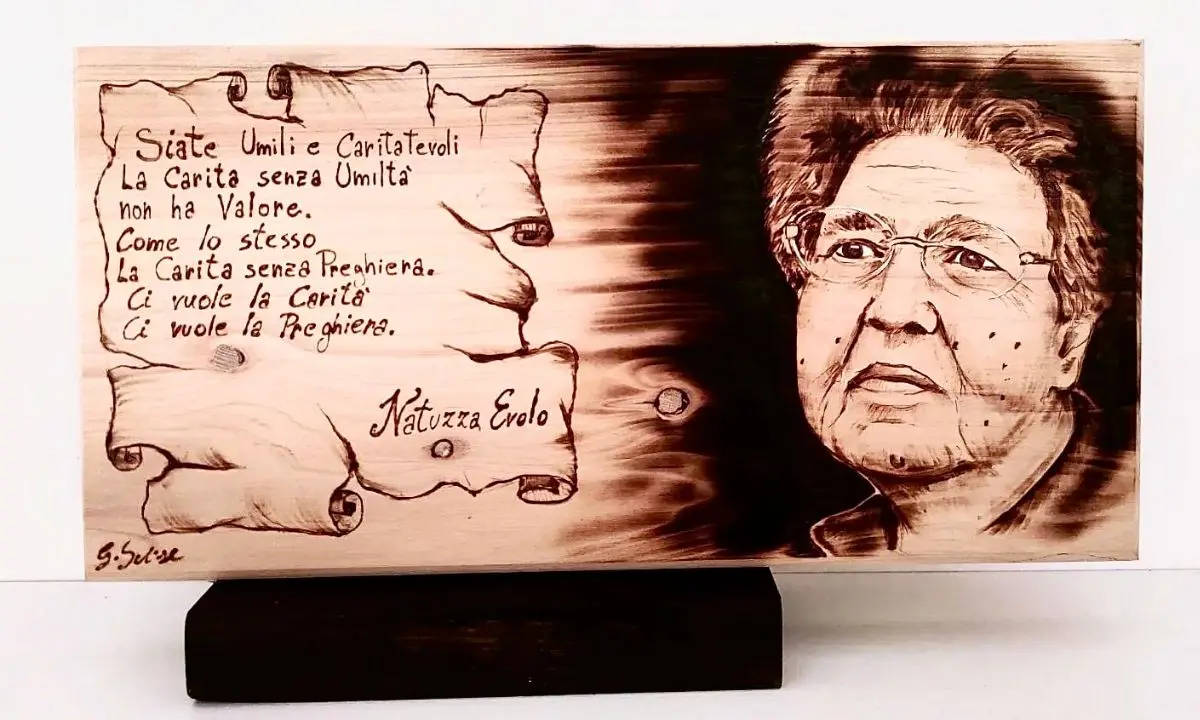 Siate Umili e Caritatevoli
La Carita senza Umiltà
non ha Valore.
Come lo stesso
La Carita senza Preghiera.
Ci vuole la Carità
Ci vuole la Preghiera.
Natuzza Evolo